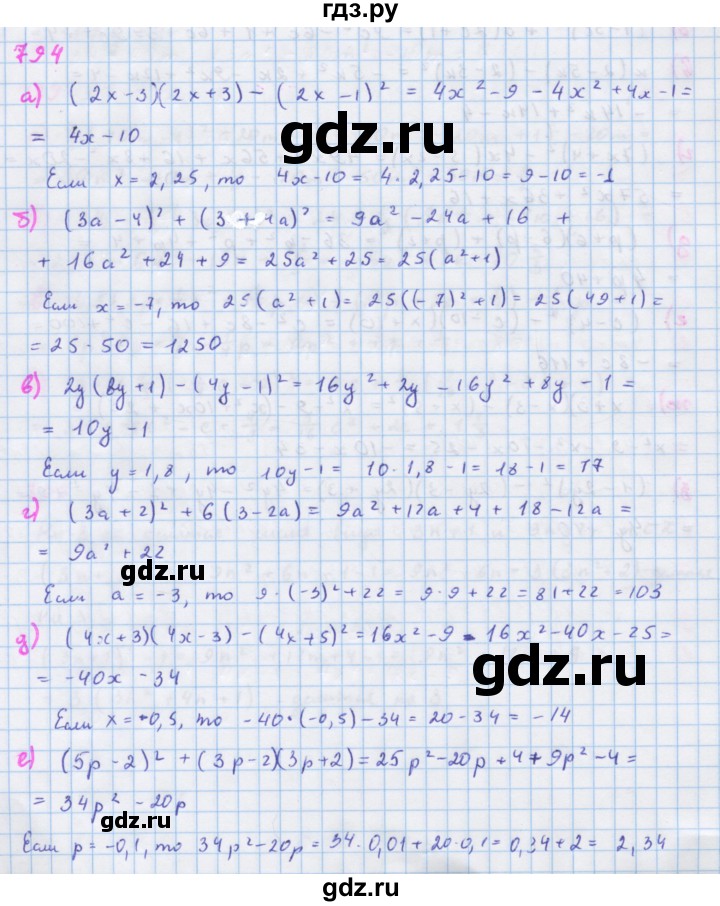 гдз.ру
794
а) (2x-3)(2x+3) - (2x-1)² = 4x²-9-4x²+4x-1=
gdz.ru
= 4x-10
Если x = 2,25, то 4x-10 = 4·2,25-10 = 9-10 = -1
gdz.ru
б) (3a-4)² + (3+4a)² = 9a² - 24a + 16 +
+ 16a² + 24 + 9 = 25a² + 25 = 25(a²+1)
Если x = -7, то 25(a²+1) = 25((-7)²+1) = 25(49+1) =
gdz.ru
= 25·50 = 1250
в) 2y(8y+1) - (4y-1)² = 16y² + 2y - 16y² + 8y - 1 =
= 10y - 1
Если y = 1,8, то 10y-1 = 10·1,8-1 = 18-1 = 17
г) (3a+2)² + 6(3-2a) = 9a² + 12a + 4 + 18 - 12a =
= 9a² + 22
gdz.ru
Если a = -3, то 9·(-3)²+22 = 9·9+22 = 81+22 = 103
д) (4x+3)(4x-3) - (4x+5)² = 16x²-9 - 16x²-40x-25=
gdz.ru
= -40x - 34
Если x = -0,5, то -40·(-0,5)-34 = 20-34 = -14
е) (5p-2)² + (3p-2)(3p+2) = 25p²-20p+4+9p²-4=
= 34p² - 20p
gdz.ru
Если p = -0,1, то 34p²-20p = 34·0,01+20·0,1 = 0,34+2 = 2,34
gdz.ru